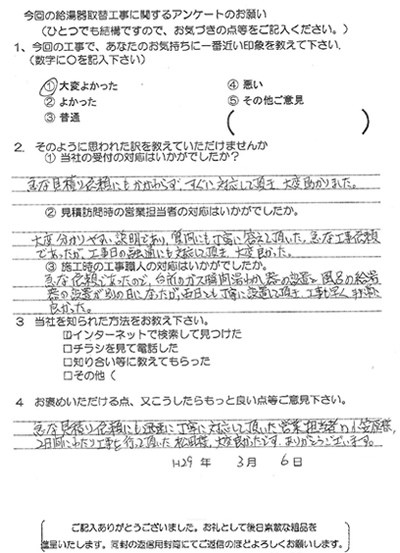 今回の給湯器取替工事に関するアンケートのお願い
(ひとつでも結構ですので、お気づきの点等をご記入ください。)
1、今回の工事で、あなたのお気持ちに一番近い印象を教えて下さい.
(数字に○を記入下さい)
① 大変よかった
④ 悪い
② よかった
⑤ その他ご意見
③ 普通
2. そのように思われた訳を教えていただけませんか
① 当社の受付の対応はいかがでしたか？
急な見積り依頼にもかかわらず、すぐに対応して頂き、大変助かりました。
② 見積訪問時の営業担当者の対応はいかがでしたか。
大変分かりやすい説明であり、質問にも丁寧に答えて頂いた。急な工事依頼
であったが、工事日の融通にも対応して頂き、大変良かった。
③ 施工時の工事職人の対応はいかがでしたか。
急な依頼であったので、台所のガス瞬間湯わかし器の設置と風呂の給湯
器の設置が別の日になったが、両日とも丁寧に設置して頂き、工事も早く、非常に
良かった。
3 当社を知られた方法をお教え下さい。
□インターネットで検索して見つけた
□チラシを見て電話した
□知り合い等に教えてもらった
□その他（
4 お褒めいただける点、又こうしたらもっと良い点等ご意見下さい。
急な見積り依頼にも迅速に丁寧に対応して頂いた営業担当者の小笠原様、
2日間にわたり工事を行って頂いた松岡様、大変良かったです。ありがとうございます。
H29 年 3 月 6 日
ご記入ありがとうございました。お礼として後日素敵な粗品を
進呈いたします。同封の返信用封筒にてご返信のほどよろしくお願いします。